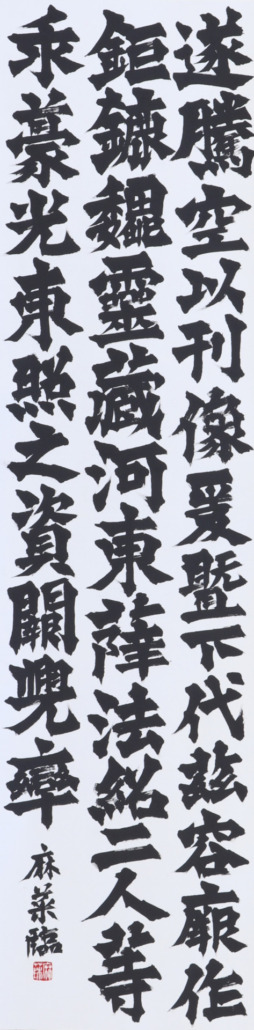 遂騰空以刊像爰暨下代茲容廓作
鉅鏕魏靈藏河東薛法紹二人等
乗豪光東照之資闕兜率
麻菜臨